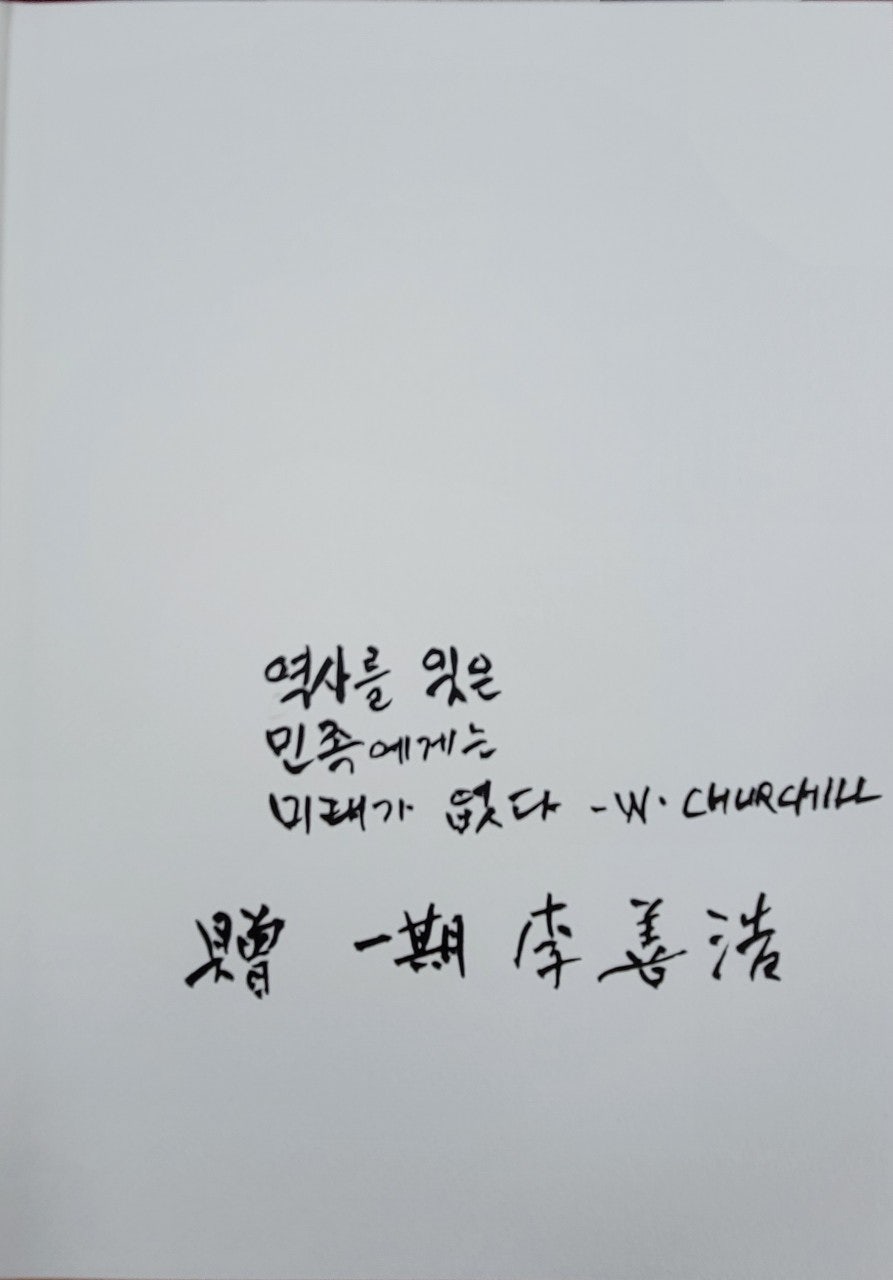 역사를 잊은
민족에게는
미래가 없다 - W. CHURCHILL
贈 一期 李善浩